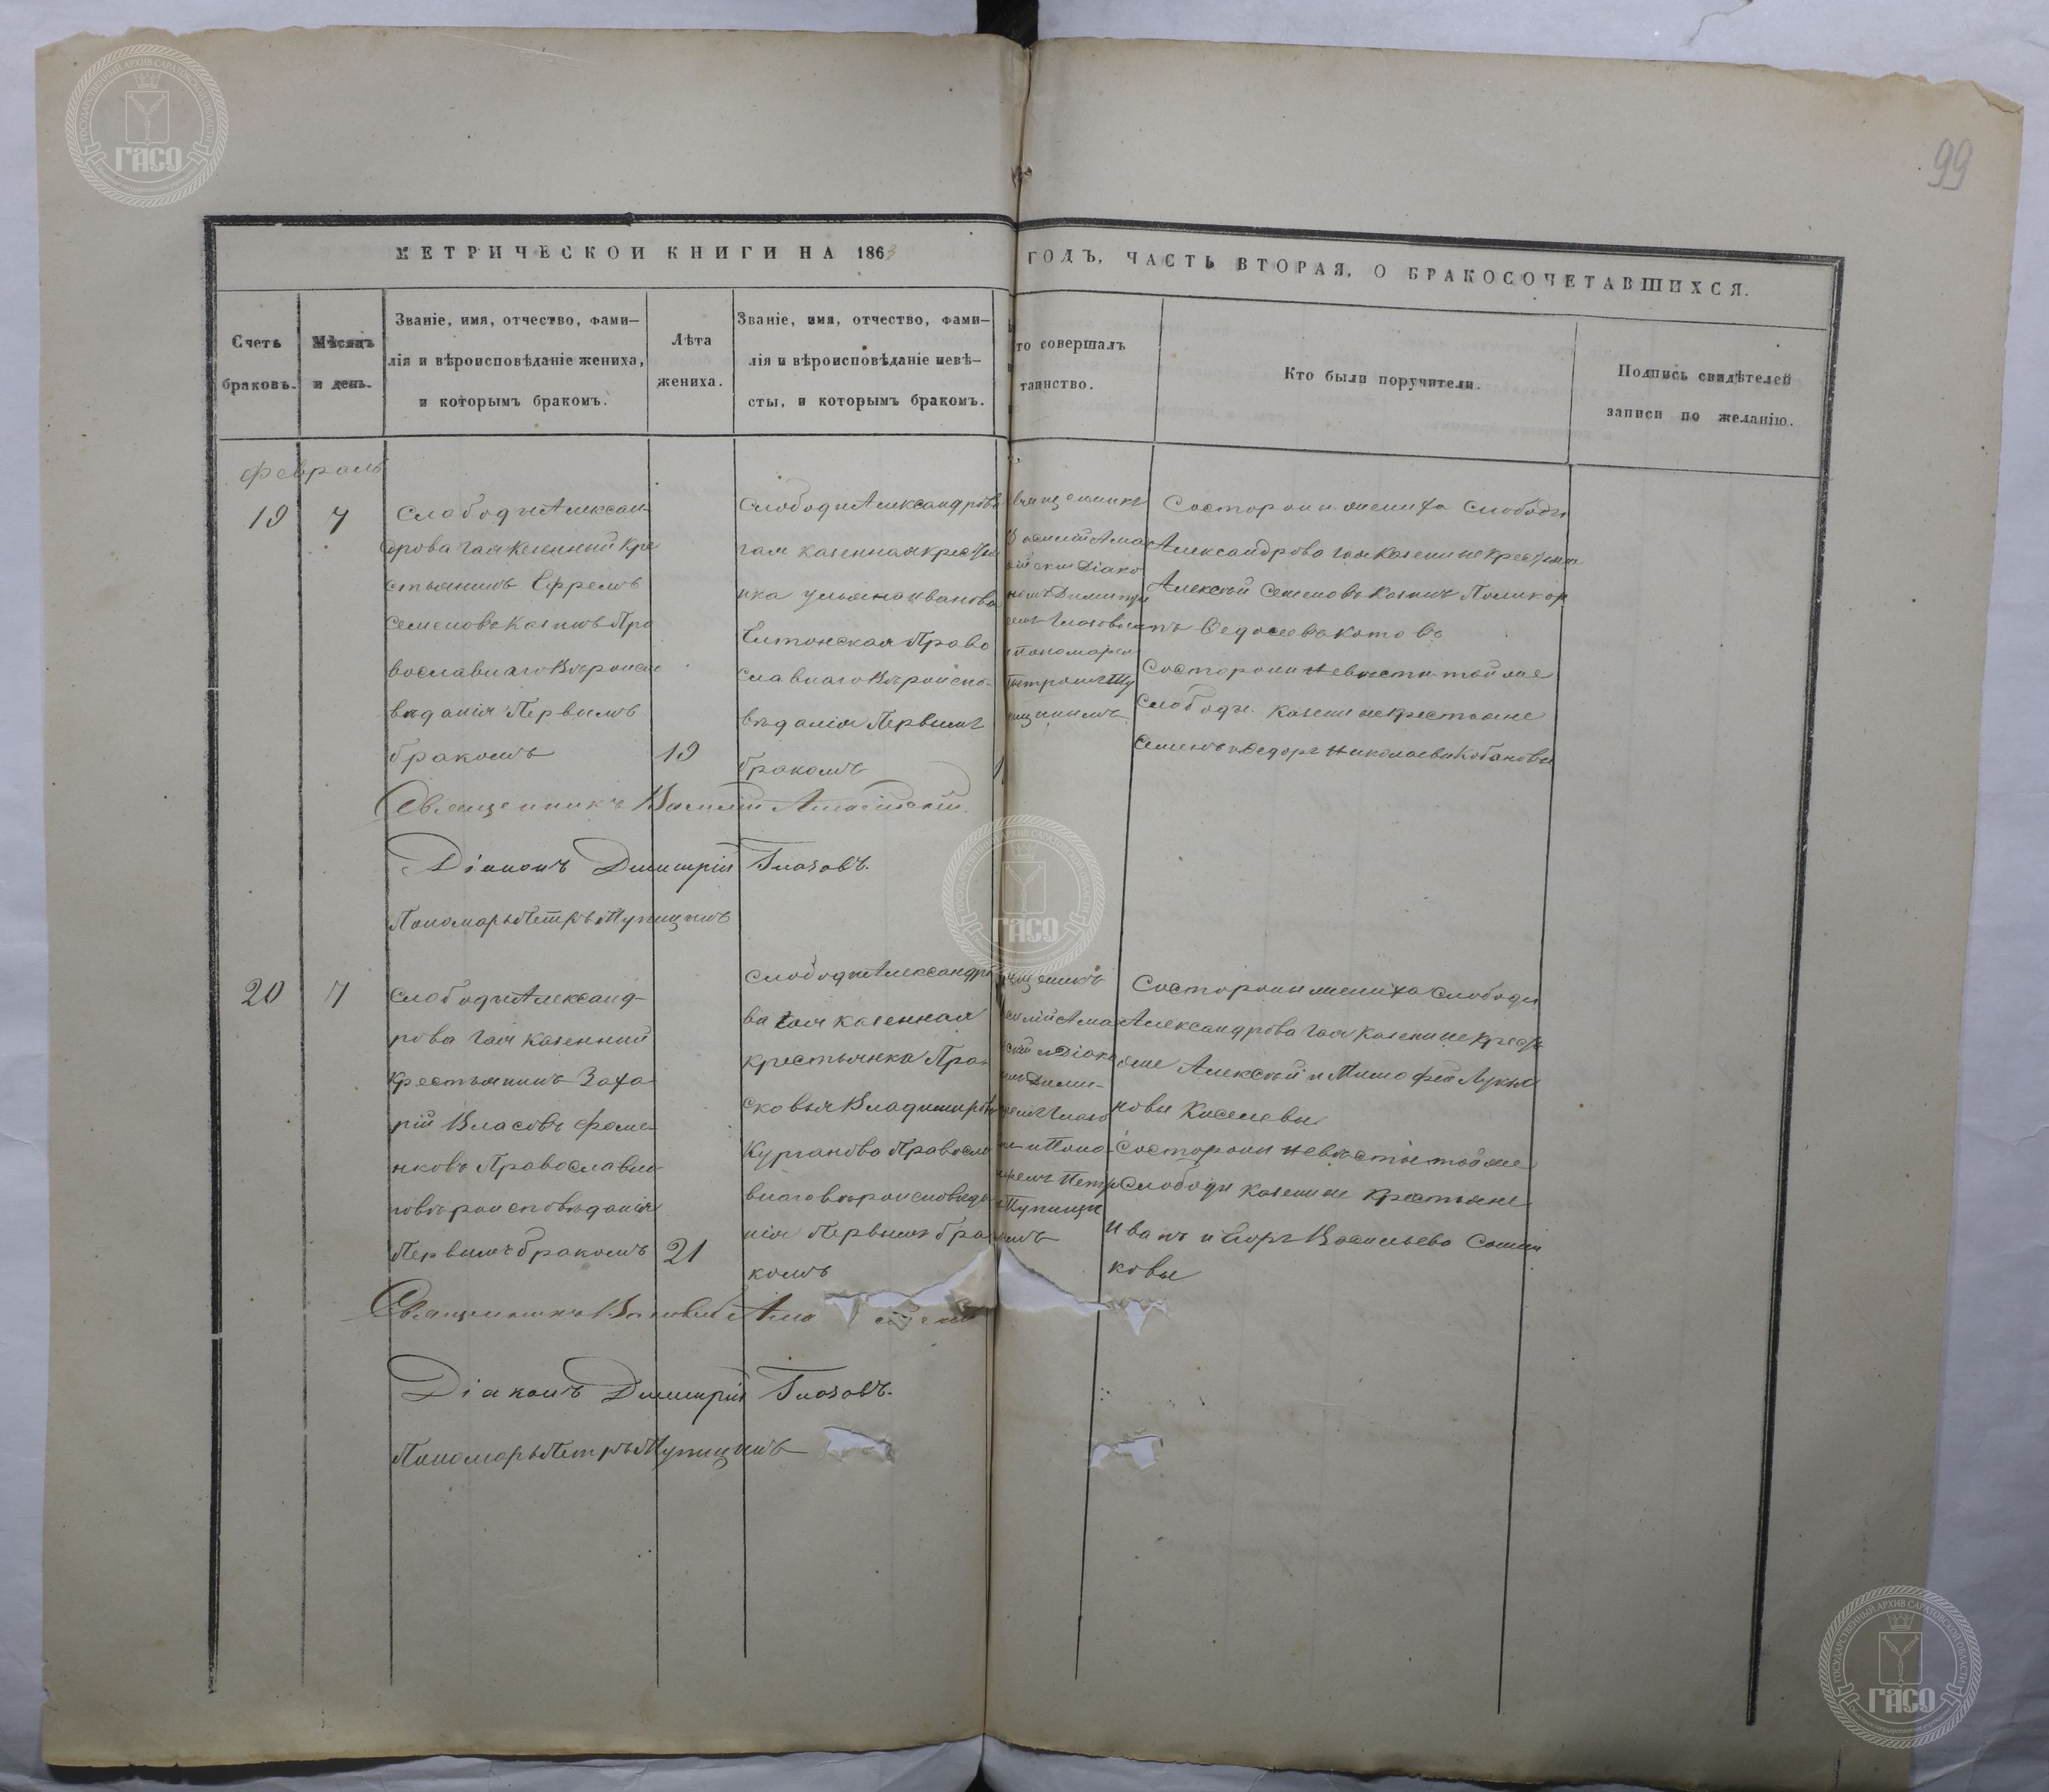 99
МЕТРИЧЕСКОЙ КНИГИ НА 1863
ГОДЪ, ЧАСТЬ ВТОРАЯ, О БРАКОСОЧЕТАВШИХСЯ.
Счетъ
браковъ.
Мѣсяцъ
и день.
Званіе, имя, отчество, фами-
лія и вѣроисповѣданіе жениха,
и которымъ бракомъ.
Лѣта
жениха.
Званіе, имя, отчество, фами-
лія и вѣроисповѣданіе невѣ-
сты, и которымъ бракомъ.
то совершалъ
таинство.
Кто были поручители.
Подпись свидѣтелей
записи по желанію.
Февраль
19
7
Слободы Алексан-
дрова гая казенный кре
стьянинъ Ефремъ
Семеновъ Казинъ Пра
вославнаго Вѣроиспо
вѣданія Первымъ
бракомъ
19
Слободы Александрова
гая казенная крестья
нка Ульяна Иванова
Право
славнаго Вѣроиспо-
вѣданія Первымъ
бракомъ
священникъ
Василій Ама
сійскій Діако
номъ Димитрі
емъ Глазовым
Пономарем
Петромъ Ту
пицинымъ
Состороны жениха Слободы
Александрова гая Казенные крестьяне
Алексѣй Семеновъ Казинъ Поликар
пъ Федосеевъ Котовъ
Состороны Невѣсты той же
Слободы казенные крестьяне
Семенъ и Федоръ Николаевы Кобановы
Священникъ Василій Амасійскій.
Діаконъ Димитрій Глазовъ.
Пономарь Петръ Тупицинъ
20
7
Слободы Александ-
рова гая казенный
крестьянинъ Заха
рій Власовъ Фоме-
нковъ Православна
говѣроисповѣданія
Первымъ бракомъ
21
Слободы Александро
ва гая казенная
крестьянка Пра-
сковья Владимирова
Курганова Правосла
внаго вѣроисповѣда
нія Первымъ бра
комъ
ященникъ
силій Ама
сійскій и Діако
номъ Дими-
ріемъ Глазо
и Поно-
аремъ Петро
Тупицы
Состороны жениха слободы
Александрова гая Казенные крестья
яне Алексѣй и Тимофей Лукья
новы Киселевы
Состороны Невѣсты той же
Слободы казенные крестьяне
Иванъ и Егоръ Васильевы
ковы
Священникъ Василій Ама
Діаконъ Димитрій Глазовъ.
Пономарь Петръ Тупицинъ
ГОСУДАРСТВЕННЫЙ АРХИВ САРАТОВСКОЙ ОБЛАСТИ
ГАСО
ГОСУДАРСТВЕННЫЙ АРХИВ САРАТОВСКОЙ ОБЛАСТИ
ГАСО
ГОСУДАРСТВЕННЫЙ АРХИВ САРАТОВСКОЙ ОБЛАСТИ
ГАСО